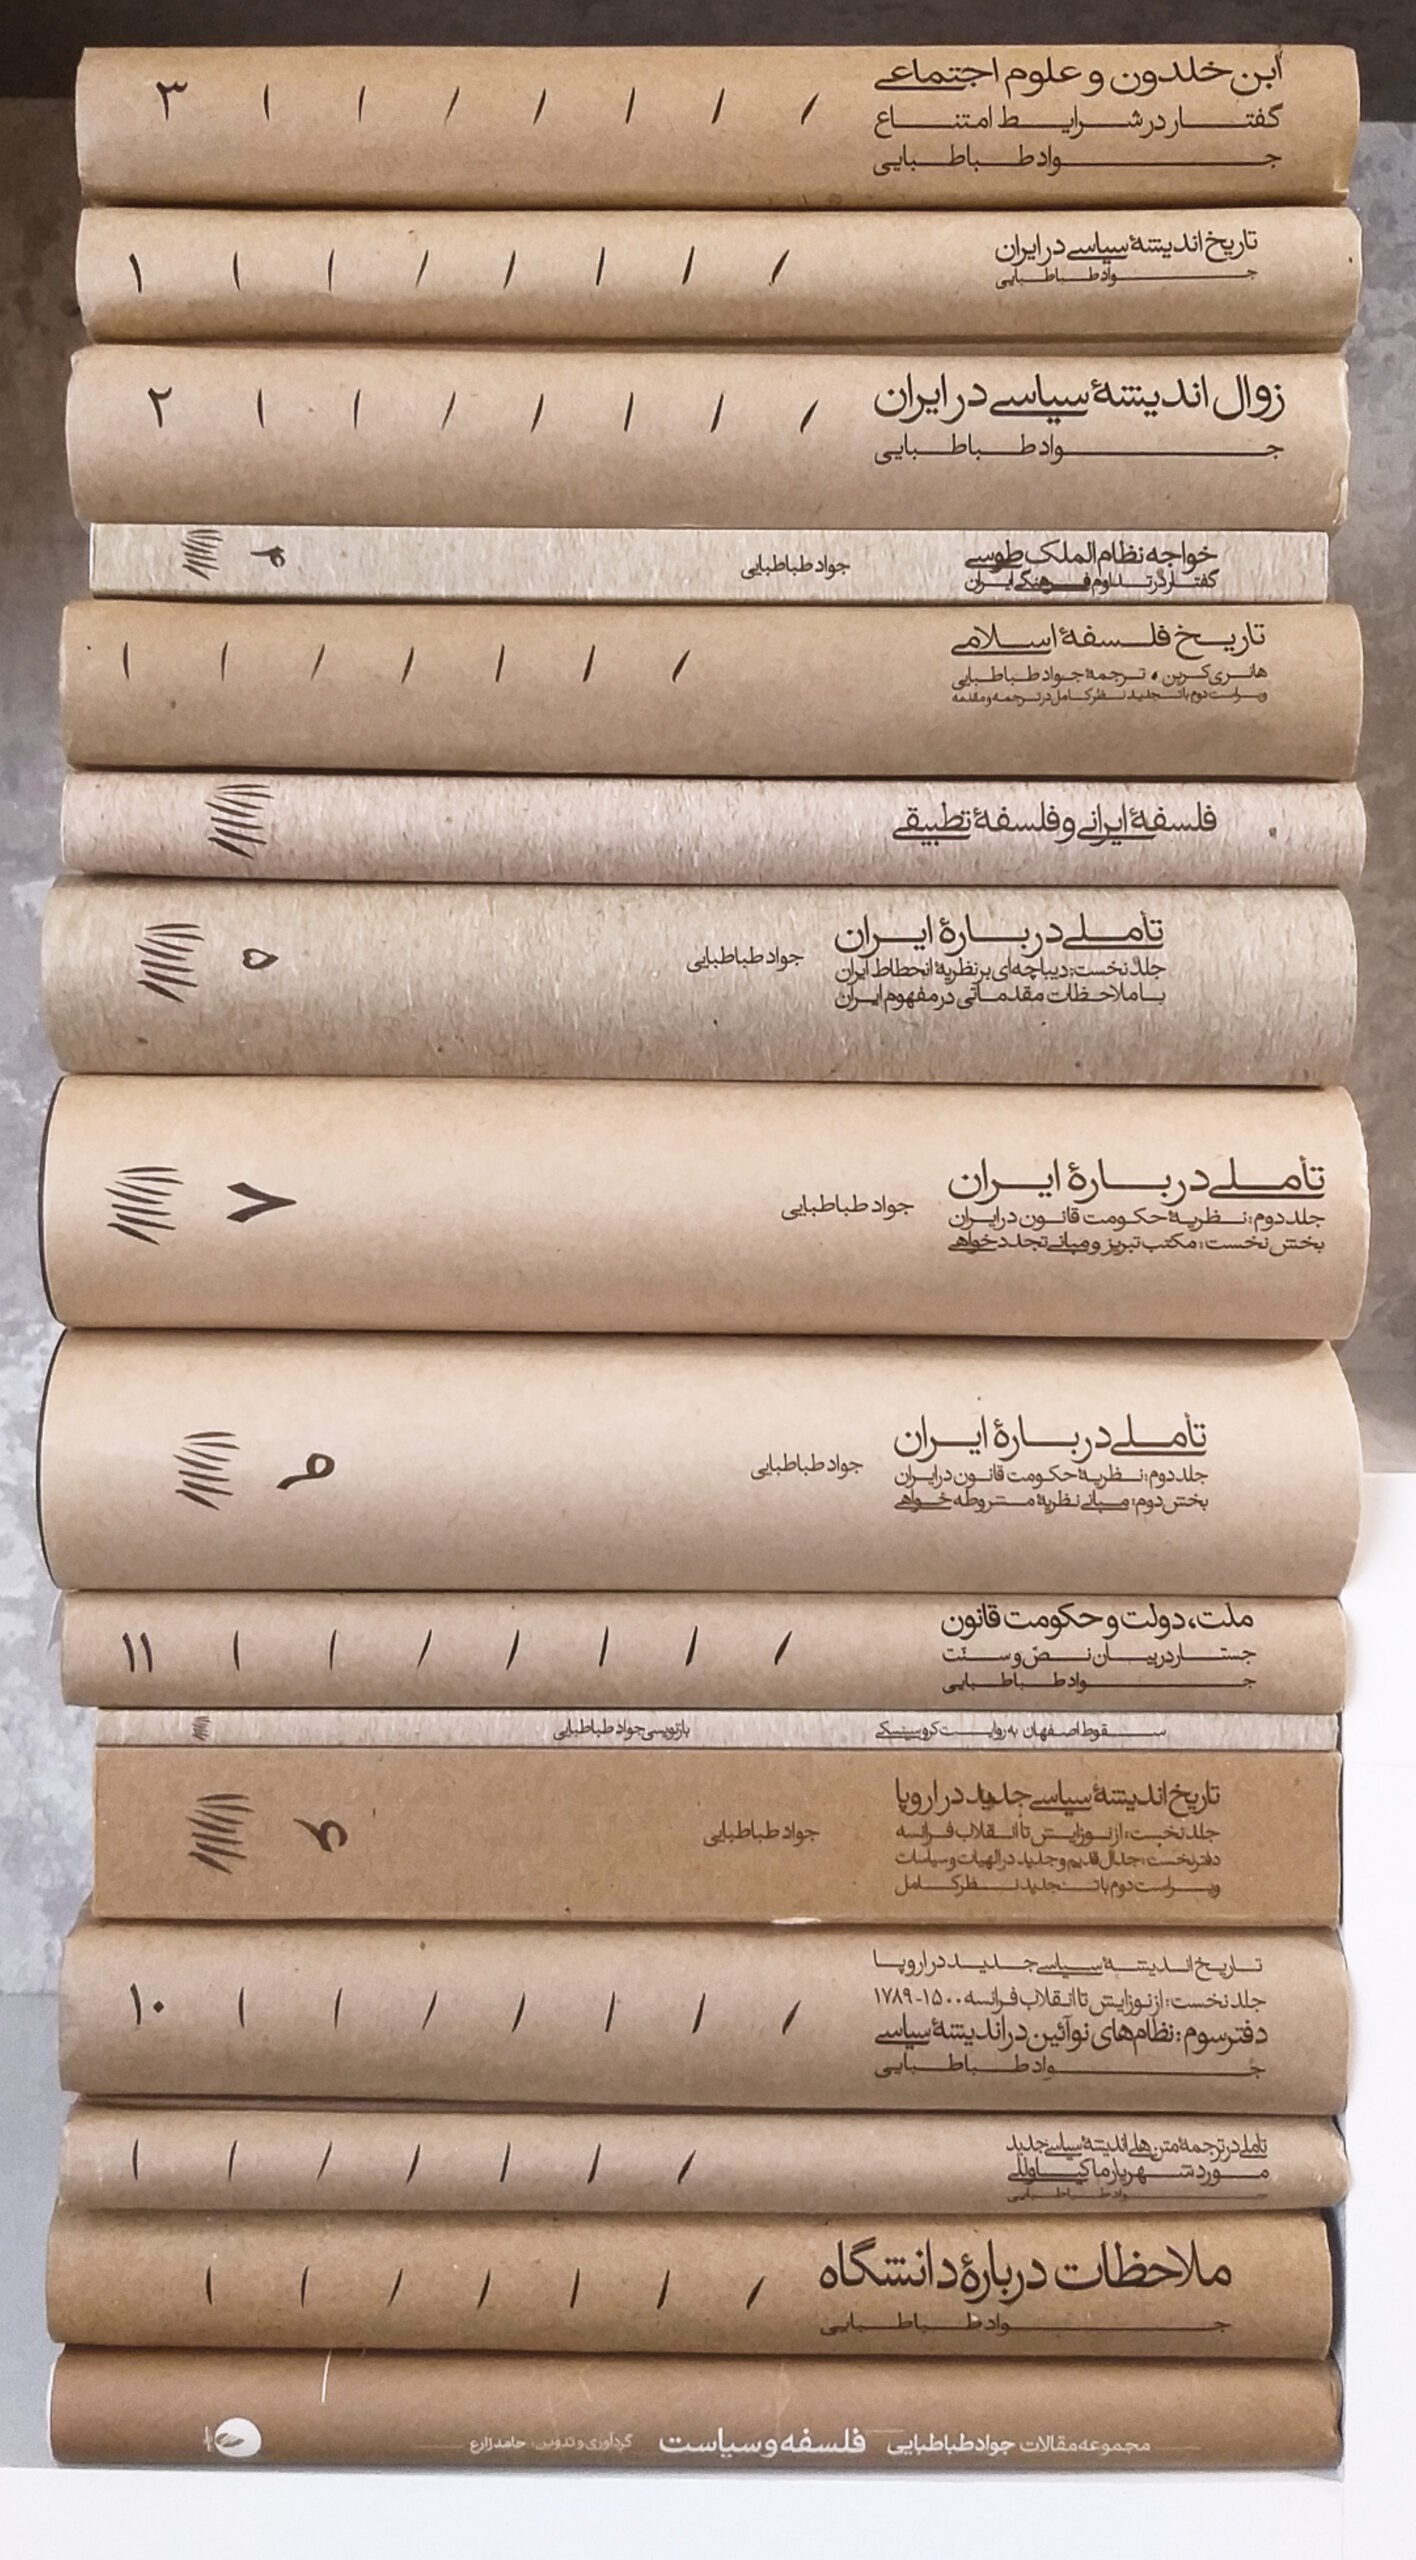 ابن خلدون و علوم اجتماعی
گفتار در شرایط امتناع
جواد طباطبایی
۳
تاریخ اندیشهٔ سیاسی در ایران
جواد طباطبایی
۱
زوال اندیشهٔ سیاسی در ایران
جواد طباطبایی
۲
خواجه نظام‌الملک طوسی
گفتار در تداوم فرهنگی ایران
جواد طباطبایی
۴
تاریخ فلسفهٔ اسلامی
هانری کربن • ترجمهٔ جواد طباطبایی
ویراست دوم با تجدید نظر کامل در ترجمه و مقدمه
فلسفهٔ ایرانی و فلسفهٔ تطبیقی
تأملی دربارهٔ ایران
جلد نخست: دیباچه‌ای بر نظریهٔ انحطاط ایران
با ملاحظات مقدماتی در مفهوم ایران
جواد طباطبایی
۵
تأملی دربارهٔ ایران
جلد دوم: نظریهٔ حکومت قانون در ایران
بخش نخست: مکتب تبریز و مبانی تجددخواهی
جواد طباطبایی
۷
تأملی دربارهٔ ایران
جلد دوم: نظریهٔ حکومت قانون در ایران
بخش دوم: مبانی نظریهٔ مشروطه خواهی
جواد طباطبایی
۹
ملت، دولت و حکومت قانون
جستار در بیان نصّ و سنّت
جواد طباطبایی
۱۱
سقوط اصفهان به روایت کروسینسکی
بازنویسی جواد طباطبایی
تاریخ اندیشهٔ سیاسی جدید در اروپا
جلد نخست: از نوزایش تا انقلاب فرانسه
دفتر نخست: جدال قدیم و جدید در الهیات و سیاسات
ویراست دوم با تجدید نظر کامل
جواد طباطبایی
۶
تاریخ اندیشهٔ سیاسی جدید در اروپا
جلد نخست: از نوزایش تا انقلاب فرانسه ۱۵۰۰-۱۷۸۹
دفتر سوم: نظام‌های نوآئین در اندیشهٔ سیاسی
جواد طباطبایی
۱۰
تأملی در ترجمهٔ متن‌های اندیشهٔ سیاسی جدید
مورد شهریار ماکیاوللی
جواد طباطبایی
ملاحظات دربارهٔ دانشگاه
جواد طباطبایی
مجموعه مقالات جواد طباطبایی فلسفه و سیاست گردآوری و تدوین: حامد زارع